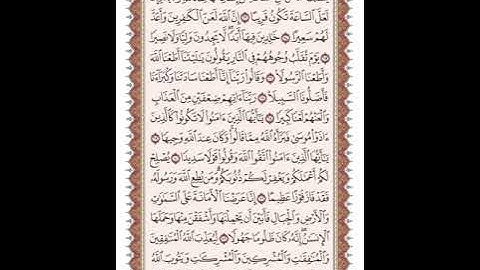 لَعَلَّ ٱلسَّاعَةَ تَكُونُ قَرِيبًا ۝ إِنَّ ٱللَّهَ لَعَنَ ٱلْكَٰفِرِينَ وَأَعَدَّ
لَهُمْ سَعِيرًا ۝ خَٰلِدِينَ فِيهَآ أَبَدًا لَّا يَجِدُونَ وَلِيًّا وَلَا نَصِيرًا
۝ يَوْمَ تُقَلَّبُ وُجُوهُهُمْ فِى ٱلنَّارِ يَقُولُونَ يَٰلَيْتَنَآ أَطَعْنَا ٱللَّهَ
وَأَطَعْنَا ٱلرَّسُولَا۠ ۝ وَقَالُوا۟ رَبَّنَآ إِنَّآ أَطَعْنَا سَادَتَنَا وَكُبَرَآءَنَا
فَأَضَلُّونَا ٱلسَّبِيلَا۠ ۝ رَبَّنَآ ءَاتِهِمْ ضِعْفَيْنِ مِنَ ٱلْعَذَابِ
وَٱلْعَنْهُمْ لَعْنًا كَبِيرًا ۝ يَٰٓأَيُّهَا ٱلَّذِينَ ءَامَنُوا۟ لَا تَكُونُوا۟ كَٱلَّذِينَ
ءَاذَوْا۟ مُوسَىٰ فَبَرَّأَهُ ٱللَّهُ مِمَّا قَالُوا۟ ۚ وَكَانَ عِندَ ٱللَّهِ وَجِيهًا ۝
يَٰٓأَيُّهَا ٱلَّذِينَ ءَامَنُوا۟ ٱتَّقُوا۟ ٱللَّهَ وَقُولُوا۟ قَوْلًا سَدِيدًا ۝ يُصْلِحْ
لَكُمْ أَعْمَٰلَكُمْ وَيَغْفِرْ لَكُمْ ذُنُوبَكُمْ ۗ وَمَن يُطِعِ ٱللَّهَ وَرَسُولَهُۥ
فَقَدْ فَازَ فَوْزًا عَظِيمًا ۝ إِنَّا عَرَضْنَا ٱلْأَمَانَةَ عَلَى ٱلسَّمَٰوَٰتِ
وَٱلْأَرْضِ وَٱلْجِبَالِ فَأَبَيْنَ أَن يَحْمِلْنَهَا وَأَشْفَقْنَ مِنْهَا وَحَمَلَهَا
ٱلْإِنسَٰنُ ۖ إِنَّهُۥ كَانَ ظَلُومًا جَهُولًا ۝ لِّيُعَذِّبَ ٱللَّهُ ٱلْمُنَٰفِقِينَ
وَٱلْمُنَٰفِقَٰتِ وَٱلْمُشْرِكِينَ وَٱلْمُشْرِكَٰتِ وَيَتُوبَ ٱللَّهُ